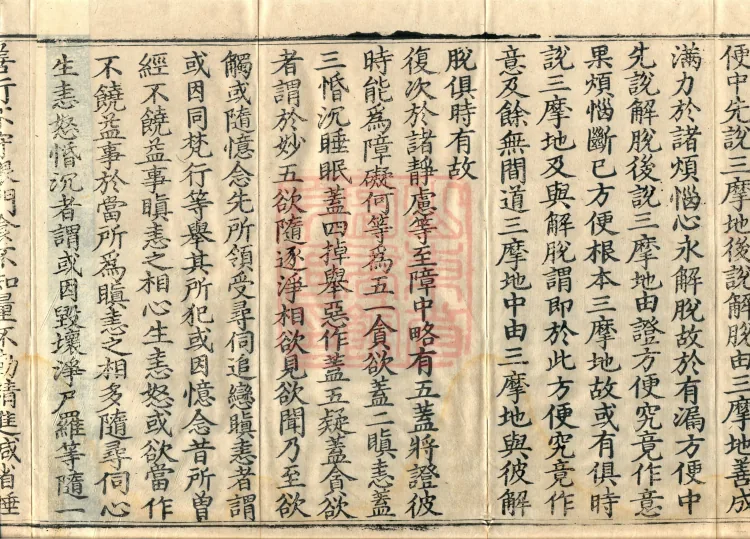 便中先說三摩地後說解脫由三摩地善成
滿力於諸煩惱心永解脫故於有漏方便中
先說解脫後說三摩地由證方便究竟作意
果煩惱斷已方便根本三摩地故或有俱時
說三摩地及與解脫謂即於此方便究竟作
意及餘無間道三摩地中由三摩地與彼解
脫俱時有故
復次於諸靜慮等至障中略有五蓋將證彼
時能為障礙何等為五一貪欲蓋二瞋恚蓋
三惛沉睡眠蓋四掉舉惡作蓋五疑蓋貪欲
者謂於妙五欲隨逐淨相欲見欲聞乃至欲
觸或隨憶念先所領受尋伺追戀瞋恚者謂
或因同梵行等舉其所犯或因憶念昔所曾
經不饒益事瞋恚之相心生恚怒或欲當作
不饒益事於當所為瞋恚之相多隨尋伺心
生恚怒惛沉者謂或因毀壞淨尸羅等隨一
善行不守根門食不知量不勤精進減省睡